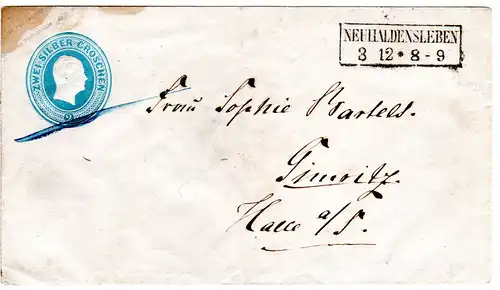 ZWEI SILBER GROSCHEN
2
NEUHALDENSLEBEN
3 12 * 8-9
Frau Sophie Bartels.
Gimritz.
Halle a/S.